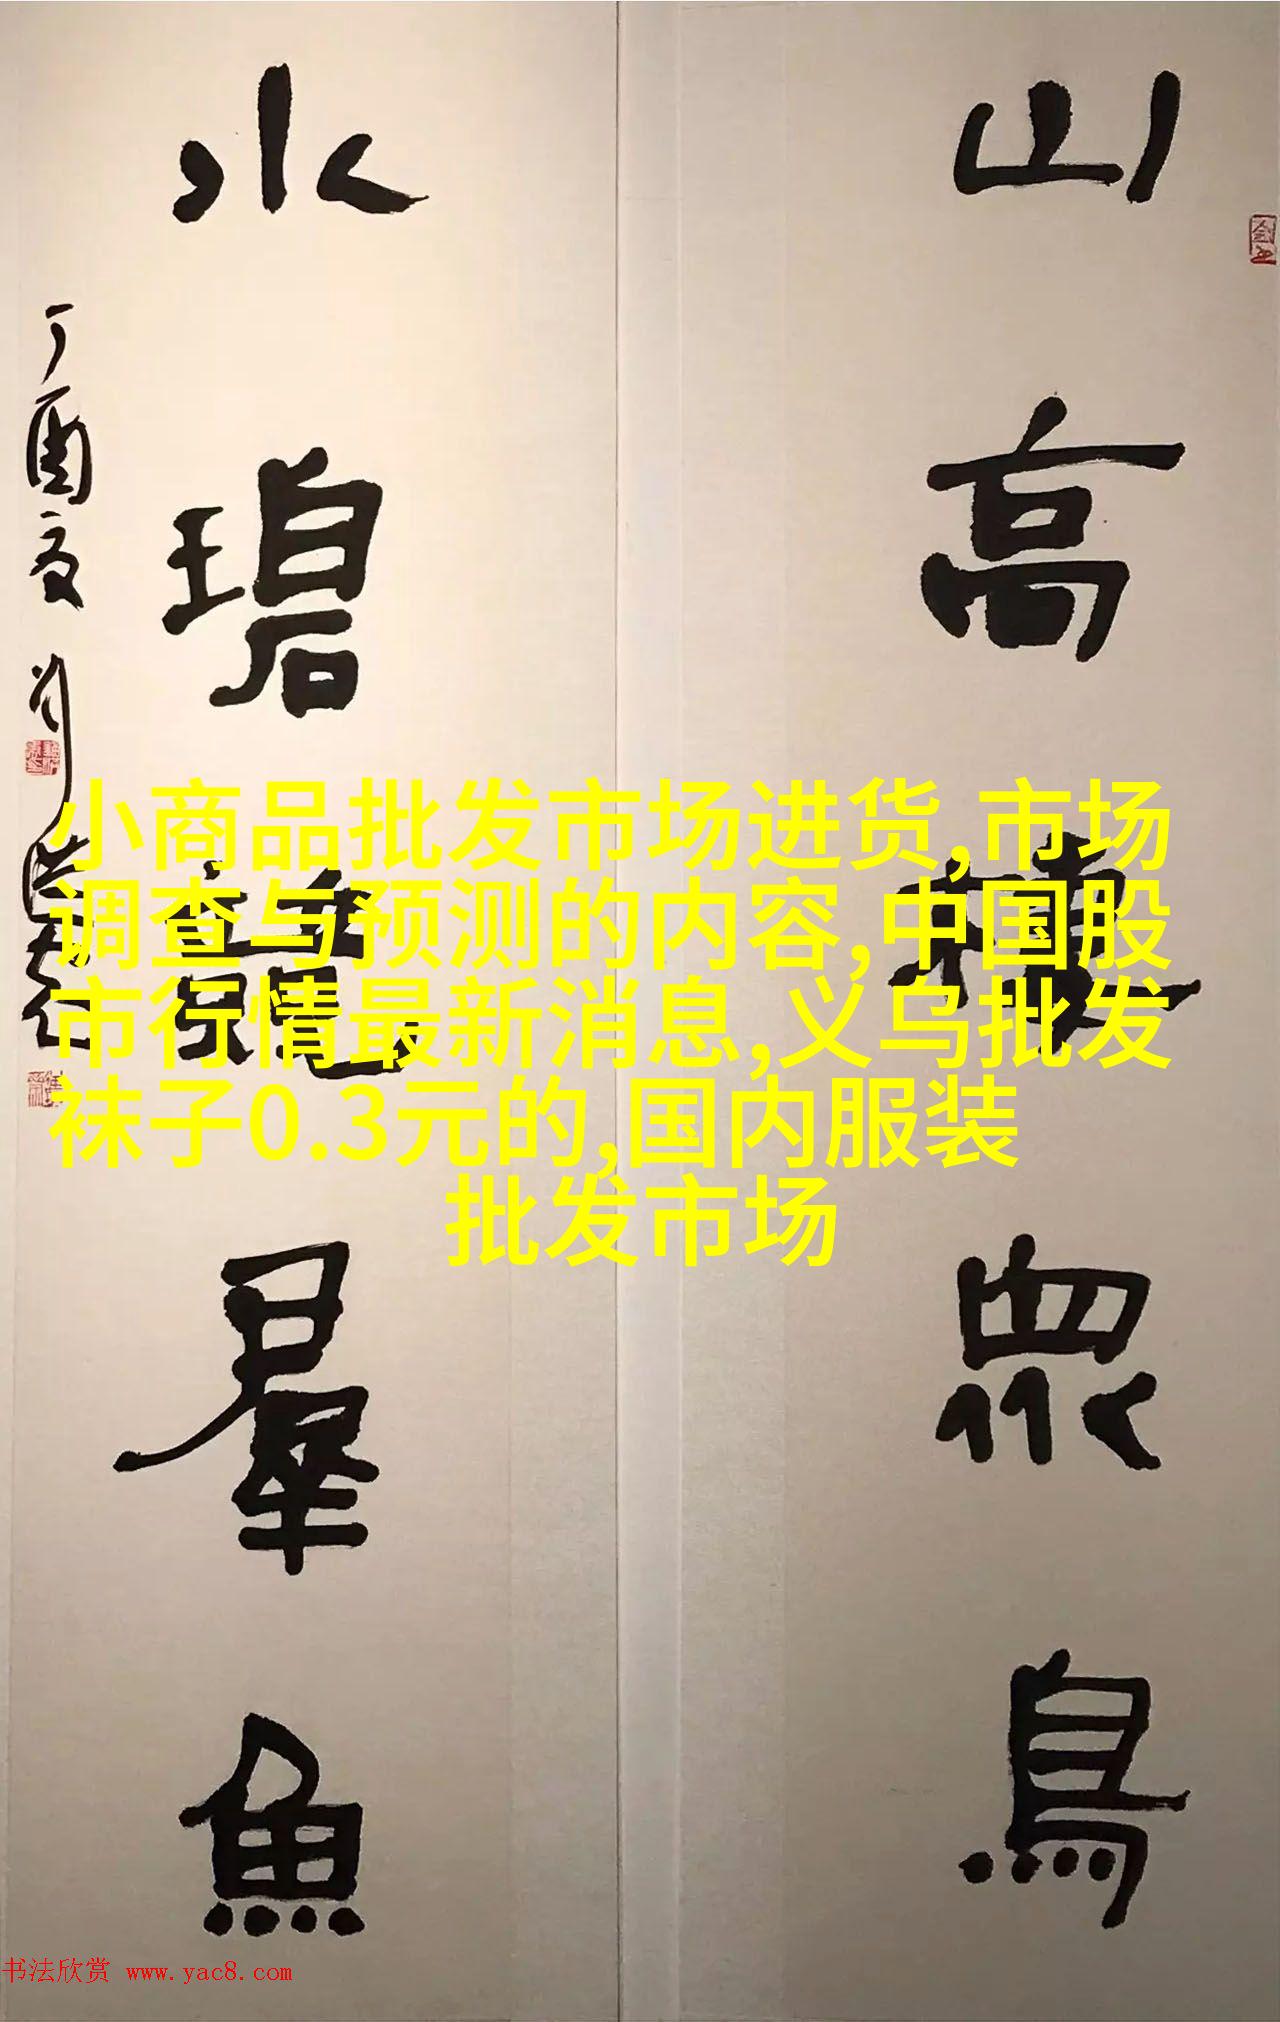 山高棲眾鳥
水碧羣魚
丁酉夏刘洪彪
小商品批发市场进货,市场
调查与预测的内容,中国股
市行情最新消息,义乌批发
袜子0.3元的,国内服装
批发市场
书法欣赏 www.yac8.com